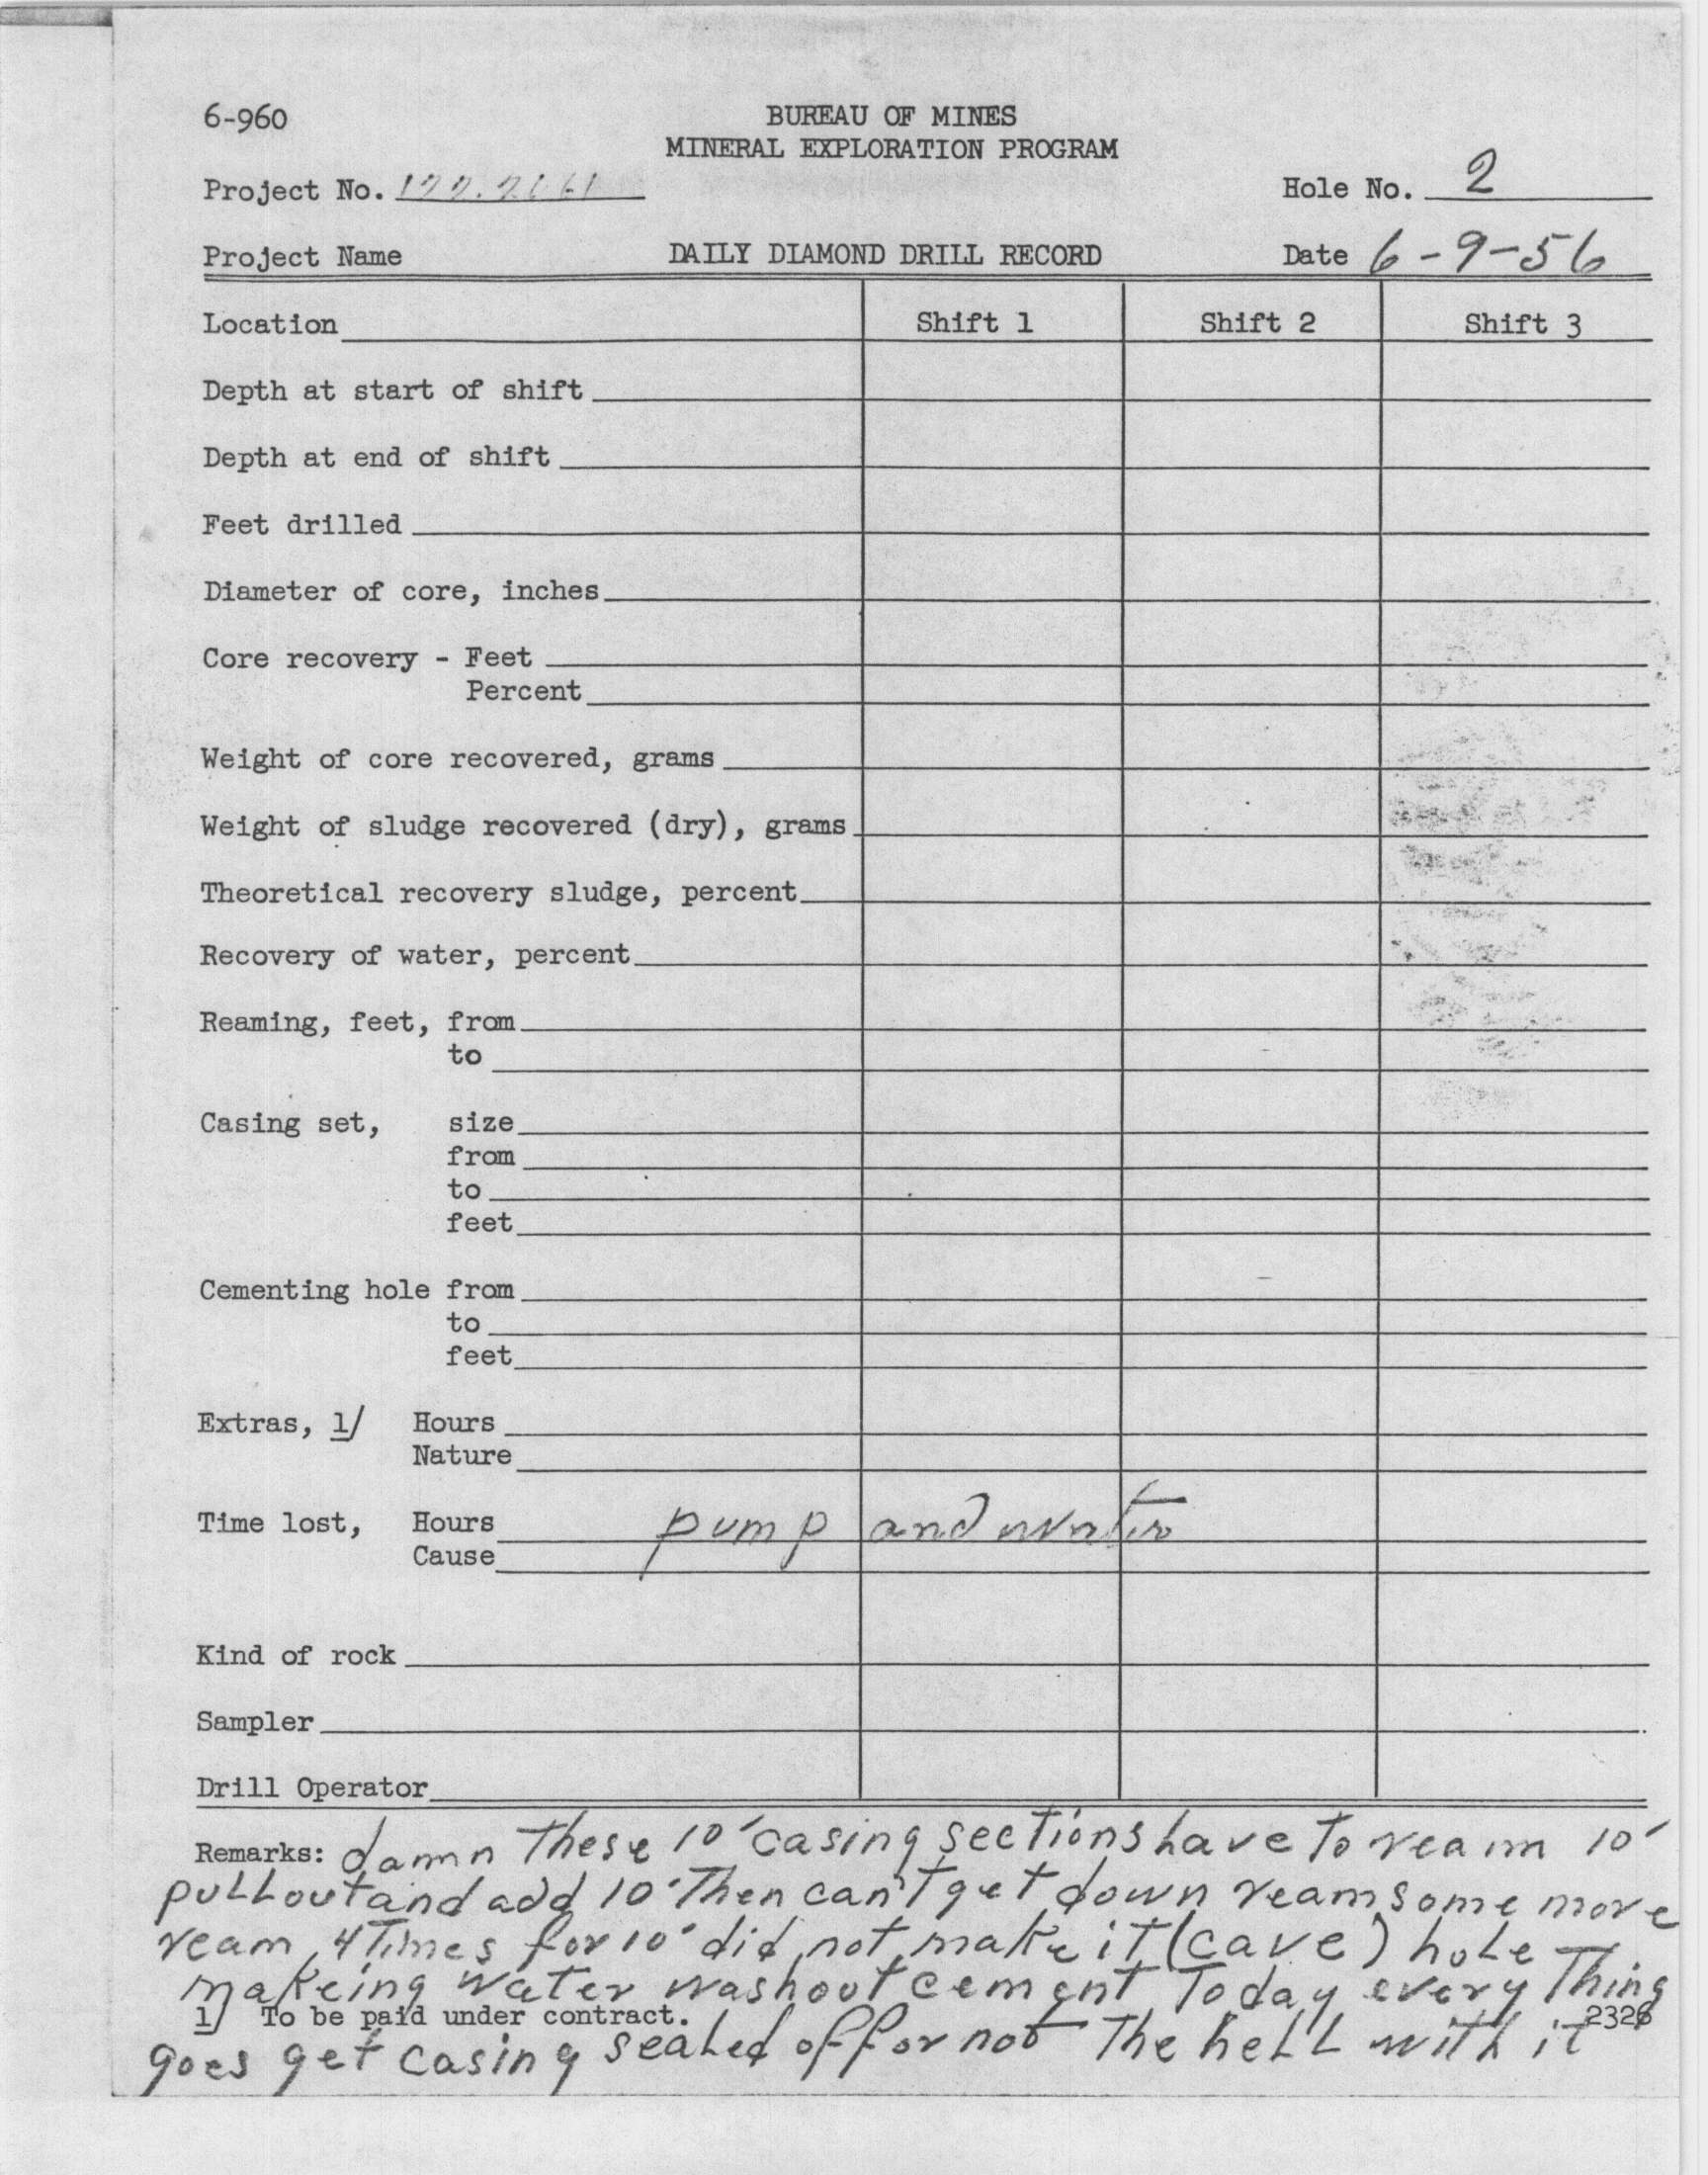 6-960
BUREAU OF MINES
MINERAL EXPLORATION PROGRAM
Project No.
Hole No. 2
Project Name DAILY DIAMOND DRILL RECORD Date 6-9-56
Location Shift 1 Shift 2 Shift 3
Depth at start of shift
Depth at end of shift
Feet drilled
Diameter of core, inches
Core recovery - Feet
Percent
Weight of core recovered, grams
Weight of sludge recovered (dry), grams
Theoretical recovery sludge, percent
Recovery of water, percent
Reaming, feet, from
to
Casing set, size
from
to
feet
Cementing hole from
to
feet
Extras, 1/ Hours
Nature
Time lost, Hours pump and water
Cause
Kind of rock
Sampler
Drill Operator
Remarks: damn these 10' casing sections have to ream 10'
pull out and add 10' Then can't get down ream some more
ream 4 Times for 10' did not make it (cave) hole
makeing water washout cement Today every Thing
1/ To be paid under contract. 2326
goes get casing sealed off or not The hell with it